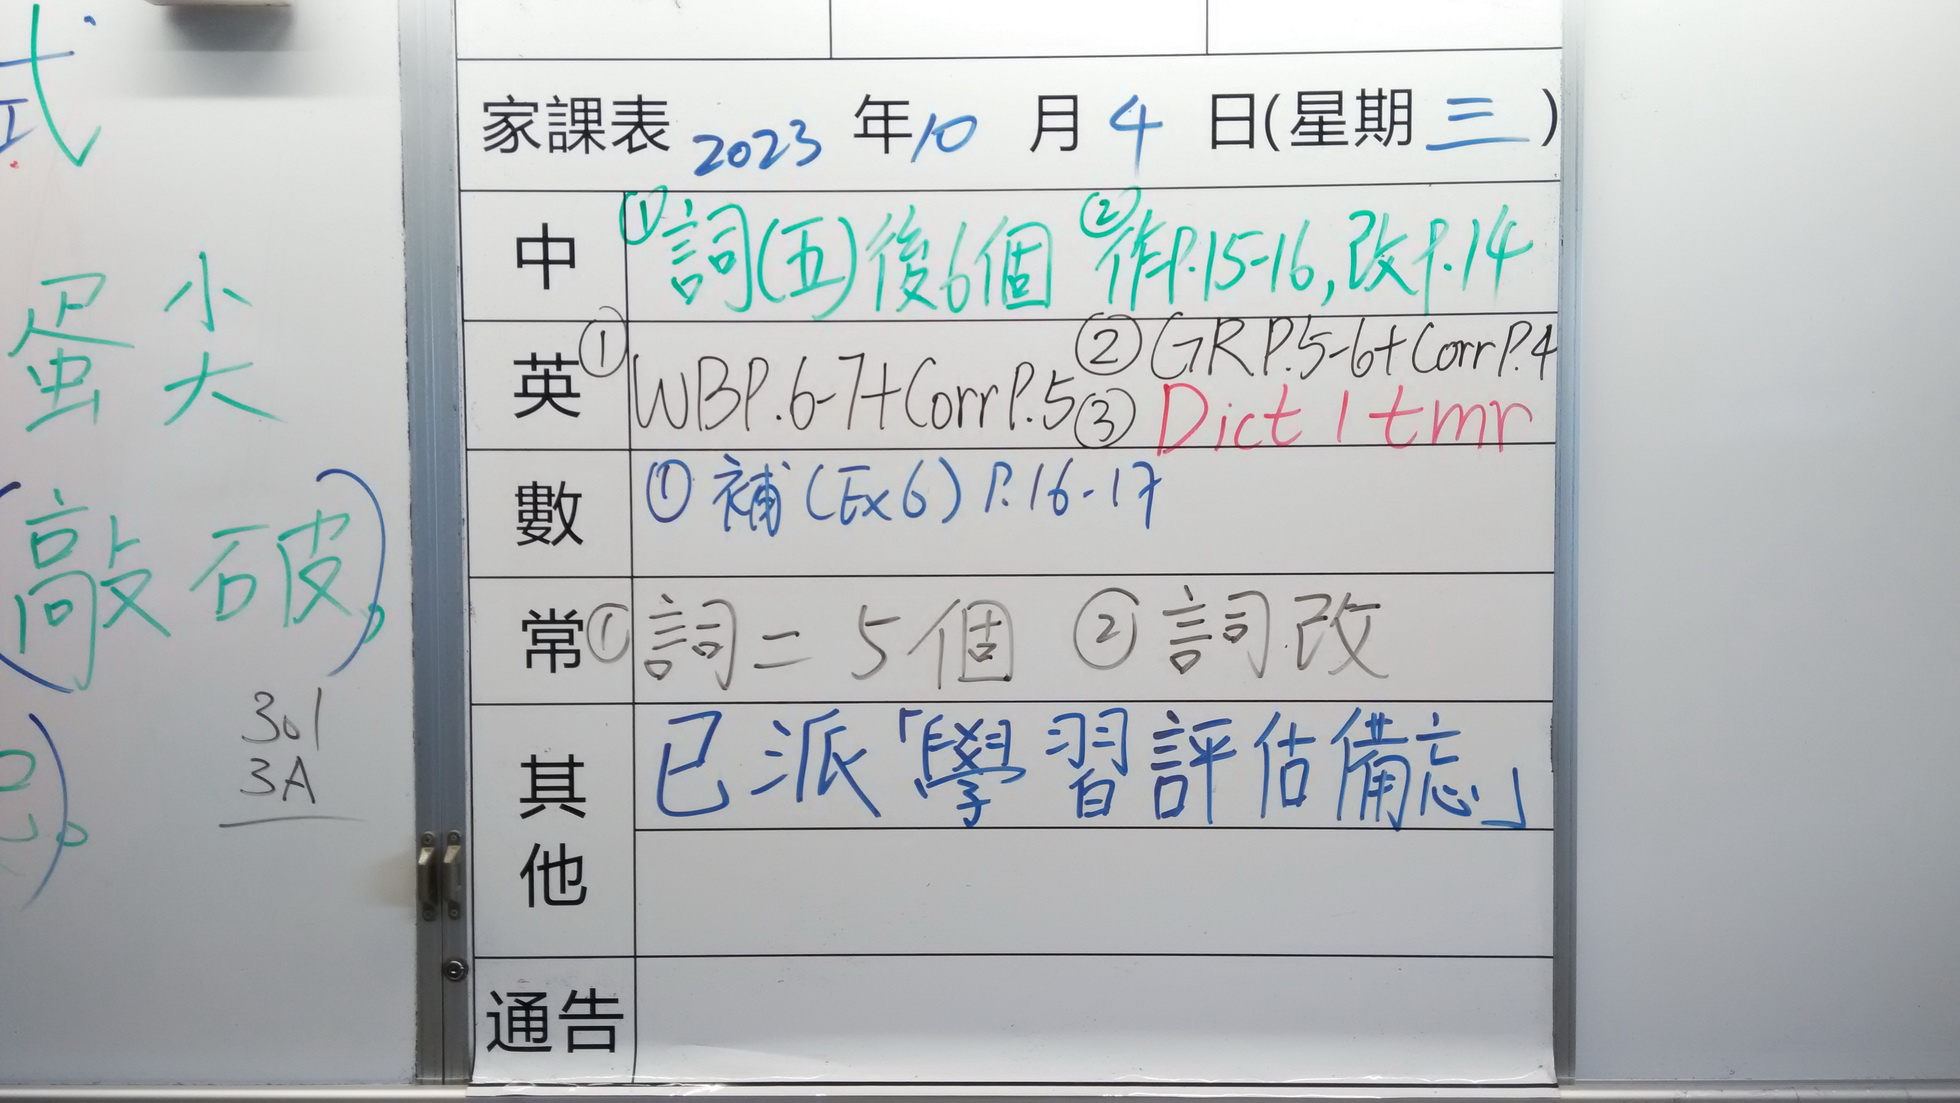 式
蛋 尖
(敲 破)。
301
3A
家課表 2023 年 10 月 4 日(星期 三 )
中 ①詞(五)後6個 ②作P.15-16,改P.14
英 ①WBP.6-7+Corr P.5 ②GR P.5-6+Corr P.4
③Dict 1 tmr
數 ①補(Ex6) P.16-17
常 ①詞二 5個 ②詞改
其他 已派「學習評估備忘」
通告